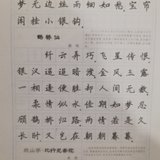 梦无边丝雨细如愁宝帘
闲挂小银钩
鹊桥仙
纤云弄巧飞星传恨
银汉迢迢暗度金风玉露
一相逢便胜却人间无数
柔情似水佳期如梦忍
顾鹊桥归路两情若是久
长时又岂在朝朝暮暮